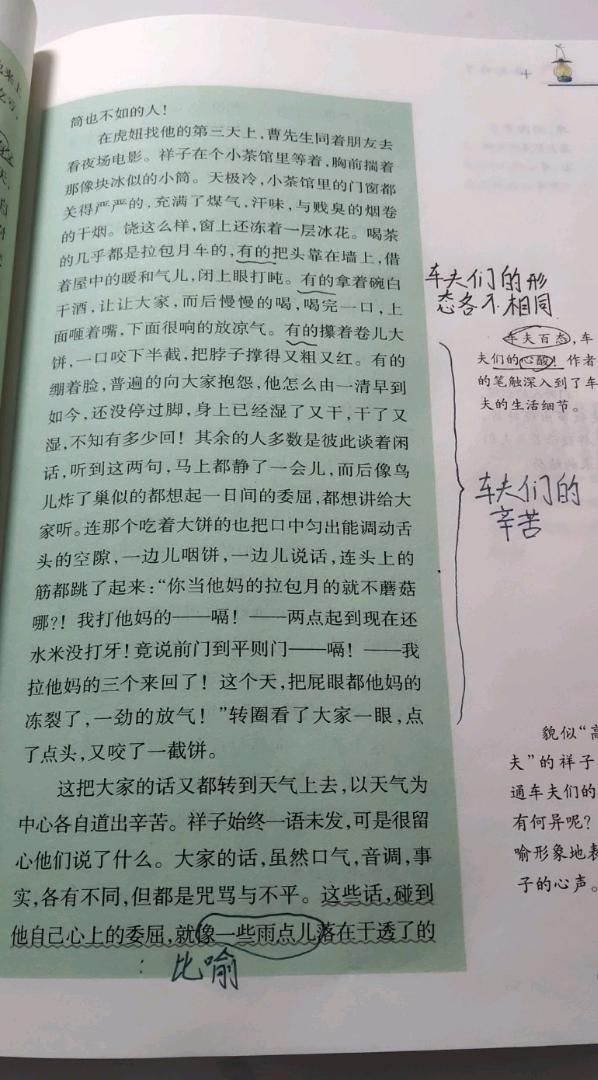 筒也不如的人！
在虎妞找他的第三天上，曹先生同着朋友去
看夜场电影。祥子在个小茶馆里等着，胸前揣着
那像块冰似的小筒。天极冷，小茶馆里的门窗都
关得严严的，充满了煤气，汗味，与贱臭的烟卷
的干烟。饶这么样，窗上还冻着一层冰花。喝茶
的几乎都是拉包月车的，有的把头靠在墙上，借
着屋中的暖和气儿，闭上眼打盹。有的拿着碗白
干酒，让让大家，而后慢慢的喝，喝完一口，上
面咂着嘴，下面很响的放凉气。有的攥着卷儿大
饼，一口咬下半截，把脖子撑得又粗又红。有的
绷着脸，普遍的向大家抱怨，他怎么由一清早到
如今，还没停过脚，身上已经湿了又干，干了又
湿，不知有多少回！其余的人多数是彼此谈着闲
话，听到这两句，马上都静了一会儿，而后像鸟
儿炸了巢似的都想起一日间的委屈，都想讲给大
家听。连那个吃着大饼的也把口中匀出能调动舌
头的空隙，一边儿咽饼，一边儿说话，连头上的
筋都跳了起来：“你当他妈的拉包月的就不蘑菇
哪？！我打他妈的——嗝！——两点起到现在还
水米没打牙！竟说前门到平则门——嗝！——我
拉他妈的三个来回了！这个天，把屁眼都他妈的
冻裂了，一劲的放气！”转圈看了大家一眼，点
了点头，又咬了一截饼。
这把大家的话又都转到天气上去，以天气为
中心各自道出辛苦。祥子始终一语未发，可是很留
心他们说了什么。大家的话，虽然口气，音调，事
实，各有不同，但都是咒骂与不平。这些话，碰到
他自己心上的委屈，就像一些雨点儿落在干透了的
比喻
车夫们的形
态各不相同
车夫百态，车
夫们的心酸！作者
的笔触深入到了车
夫的生活细节。
车夫们的
辛苦
貌似“高
夫”的祥子
通车夫们的
有何异呢？
喻形象地表
子的心声。